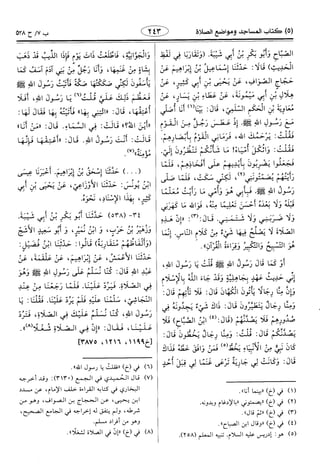 (٥) كتاب المساجد ومواضع الصلاة
٢٤٣
ب ٧/ ح ٥٢٨
الصَّبَّاحِ وَأَبُو بَكْرِ بْنُ أَبِي شَيْبَةَ. (وَتَقَارَبَا فِي لَفْظِ
الْحَدِيثِ) قَالَا: حَدَّثَنَا إِسْمَاعِيلُ بْنُ إِبْرَاهِيمَ عَنْ
حَجَّاجٍ الصَّوَّافِ، عَنْ يَحْيَى بْنِ أَبِي كَثِيرٍ، عَنْ
هِلَالِ بْنِ أَبِي مَيْمُونَةَ، عَنْ عَطَاءِ بْنِ يَسَارٍ، عَنْ
مُعَاوِيَةَ بْنِ الْحَكَمِ السُّلَمِيِّ، قَالَ: بَيْنَا(١) أَنَا أُصَلِّي
مَعَ رَسُولِ اللهِ ﷺ إِذْ عَطَسَ رَجُلٌ مِنَ الْقَوْمِ
فَقُلْتُ: يَرْحَمُكَ اللهُ، فَرَمَانِي الْقَوْمُ بِأَبْصَارِهِمْ.
فَقُلْتُ: وَاثُكْلَ أُمِّيَاهْ! مَا شَأْنُكُمْ تَنْظُرُونَ إِلَيَّ.
فَجَعَلُوا يَضْرِبُونَ بِأَيْدِيهِمْ عَلَى أَفْخَاذِهِمْ، فَلَمَّا
رَأَيْتُهُمْ يُصَمِّتُونَنِي(٢)، لَكِنِّي سَكَتُّ، فَلَمَّا صَلَّى
رَسُولُ اللهِ ﷺ، فَبِأَبِي هُوَ وَأُمِّي مَا رَأَيْتُ مُعَلِّمًا
قَبْلَهُ وَلَا بَعْدَهُ أَحْسَنَ تَعْلِيمًا مِنْهُ، فَوَاللهِ مَا كَهَرَنِي
وَلَا ضَرَبَنِي وَلَا شَتَمَنِي. قَالَ(٣): «إِنَّ هَذِهِ
الصَّلَاةَ لَا يَصْلُحُ فِيهَا شَيْءٌ مِنْ كَلَامِ النَّاسِ. إِنَّمَا
هُوَ التَّسْبِيحُ وَالتَّكْبِيرُ وَقِرَاءَةُ الْقُرْآنِ».
أَوْ كَمَا قَالَ رَسُولُ اللهِ ﷺ قُلْتُ: يَا رَسُولَ اللهِ،
إِنِّي حَدِيثُ عَهْدٍ بِجَاهِلِيَّةٍ وَقَدْ جَاءَ اللهُ بِالْإِسْلَامِ
وَإِنَّ مِنَّا رِجَالًا يَأْتُونَ الْكُهَّانَ قَالَ: «فَلَا تَأْتِهِمْ» قَالَ:
وَمِنَّا رِجَالٌ يَتَطَيَّرُونَ قَالَ: «ذَاكَ شَيْءٌ يَجِدُونَهُ فِي
صُدُورِهِمْ فَلَا يَصُدَّنَّهُمْ (قَالَ:(٤) ابْنُ الصَّبَّاحِ) فَلَا
يَصُدَّنَّكُمْ» قَالَ: قُلْتُ: وَمِنَّا رِجَالٌ يَخُطُّونَ قَالَ:
«كَانَ نَبِيٌّ مِنَ الْأَنْبِيَاءِ يَخُطُّ(٥) فَمَنْ وَافَقَ خَطَّهُ فَذَاكَ»
قَالَ: وَكَانَتْ لِي جَارِيَةٌ تَرْعَى غَنَمًا لِي قِبَلَ أُحُدٍ
(١) في (خ) «بينما أنا».
(٢) في (خ) «يصمتوني» بالإدغام وبدونه.
(٣) في (خ) «ثم قال».
(٤) في (خ) «وقال ابن الصباح».
(٥) هو: إدريس عليه السلام. تنبيه المعلم (٢٥٨).
وَالْجَوَّانِيَّةِ، فَاطَّلَعْتُ ذَاتَ يَوْمٍ فَإِذَا الذِّئْبُ قَدْ ذَهَبَ
بِشَاةٍ مِنْ غَنَمِهَا، وَأَنَا رَجُلٌ مِنْ بَنِي آدَمَ آسَفُ كَمَا
يَأْسَفُونَ لَكِنِّي صَكَكْتُهَا صَكَّةً فَأَتَيْتُ رَسُولَ اللهِ ﷺ
فَعَظَّمَ ذَلِكَ عَلَيَّ قُلْتُ(٦): يَا رَسُولَ اللهِ، أَفَلَا
أُعْتِقُهَا، قَالَ: «ائْتِنِي بِهَا» فَأَتَيْتُهُ بِهَا فَقَالَ لَهَا:
«أَيْنَ اللهُ؟» قَالَتْ: فِي السَّمَاءِ. قَالَ: «مَنْ أَنَا»
قَالَتْ: أَنْتَ رَسُولُ اللهِ. قَالَ: «أَعْتِقْهَا فَإِنَّهَا
مُؤْمِنَةٌ»(٧).
(...) حَدَّثَنَا إِسْحَقُ بْنُ إِبْرَاهِيمَ، أَخْبَرَنَا عِيسَى
ابْنُ يُونُسَ: حَدَّثَنَا الْأَوْزَاعِيُّ، عَنْ يَحْيَى بْنِ أَبِي
كَثِيرٍ، بِهَذَا الْإِسْنَادِ، نَحْوَهُ.
٣٤- (٥٣٨) حَدَّثَنَا أَبُو بَكْرِ بْنُ أَبِي شَيْبَةَ،
وَزُهَيْرُ بْنُ حَرْبٍ، وَابْنُ نُمَيْرٍ، وَأَبُو سَعِيدٍ الْأَشَجُّ
(وَأَلْفَاظُهُمْ مُتَقَارِبَةٌ) قَالُوا: حَدَّثَنَا ابْنُ فُضَيْلٍ:
حَدَّثَنَا الْأَعْمَشُ، عَنْ إِبْرَاهِيمَ، عَنْ عَلْقَمَةَ، عَنْ
عَبْدِ اللهِ قَالَ: كُنَّا نُسَلِّمُ عَلَى رَسُولِ اللهِ ﷺ وَهُوَ
فِي الصَّلَاةِ، فَيَرُدُّ عَلَيْنَا. فَلَمَّا رَجَعْنَا مِنْ عِنْدِ
النَّجَاشِيِّ، سَلَّمْنَا عَلَيْهِ فَلَمْ يَرُدَّ عَلَيْنَا. فَقُلْنَا: يَا
رَسُولَ اللهِ، كُنَّا نُسَلِّمُ عَلَيْكَ فِي الصَّلَاةِ، فَتَرُدُّ
عَلَيْنَا، فَقَالَ: «إِنَّ فِي الصَّلَاةِ شُغْلًا»(٨).
[خ١١٩٩، ١٢١٦، ٣٨٧٥]
(٦) في (خ) «فقلت: يا رسول الله».
(٧) قال الحميدي في الجمع (٣١٣٠): وقد أخرجه
البخاري في كتابه القراءة خلف الإمام، عن مسدد
ابن يحيى، عن الحجاج بن الصواف، وهو من
شرطه، ولم يتفق له إخراجه في الجامع الصحيح،
وهو من أفراد مسلم.
(٨) في (خ) «إن في الصلاة لشغلًا».